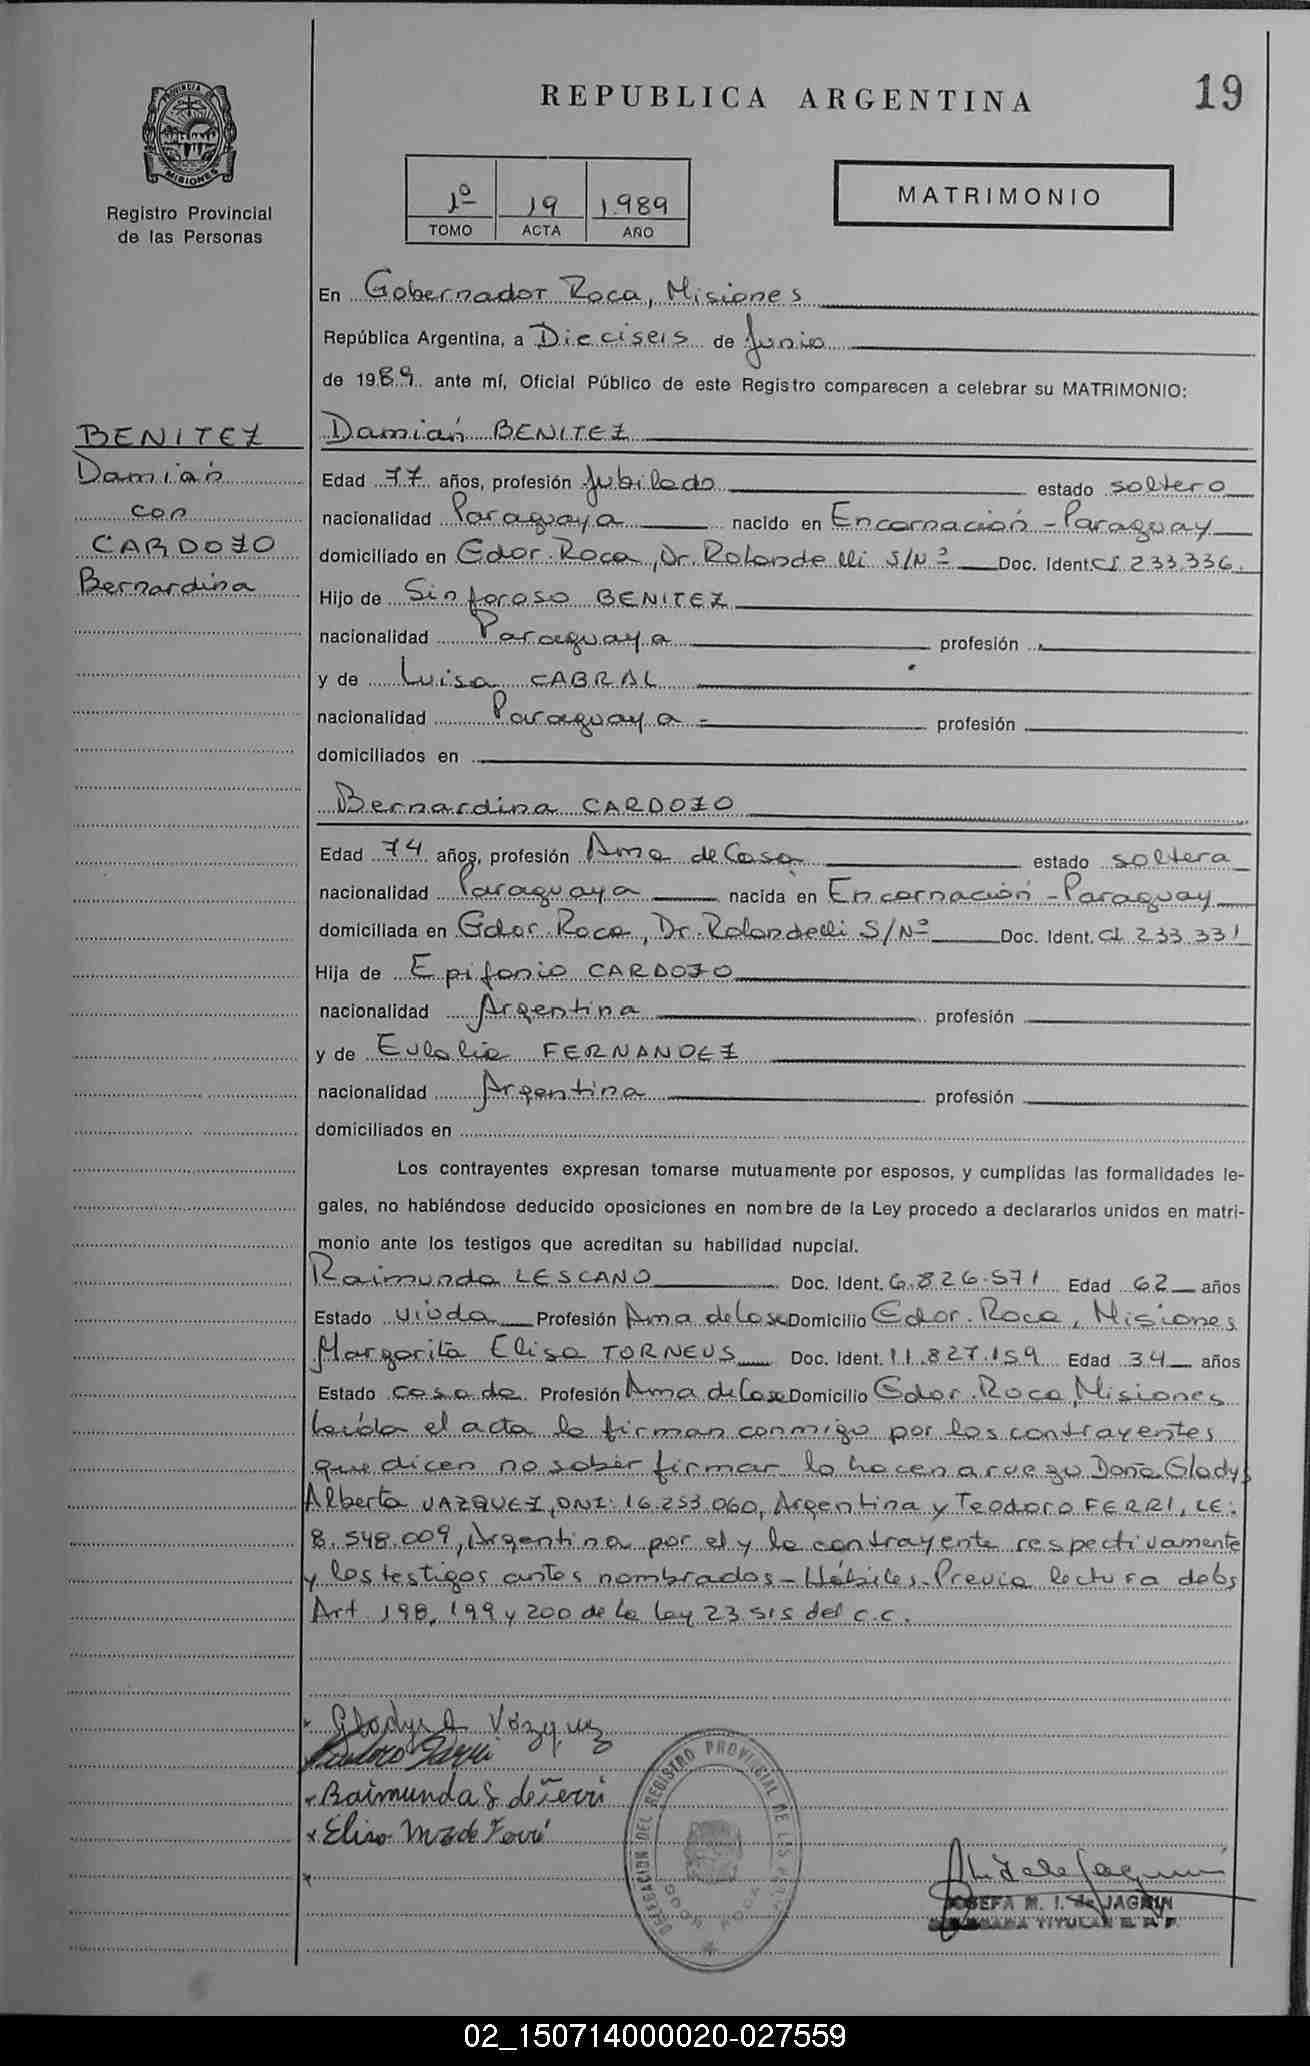 REPUBLICA ARGENTINA
19
PROVINCIA DE
MISIONES
Registro Provincial
de las Personas
1º 19 1.989
TOMO ACTA AÑO
MATRIMONIO
En Gobernador Roca, Misiones
República Argentina, a Dieciseis de Junio
de 1989 ante mí, Oficial Público de este Registro comparecen a celebrar su MATRIMONIO:
BENITEZ
Damián
con
CARDOZO
Bernardina
Damián BENITEZ
Edad 77 años, profesión Jubilado estado soltero
nacionalidad Paraguaya nacido en Encarnación - Paraguay
domiciliado en Gdor. Roca, Dr. Rolandelli S/Nº Doc. Ident. CI 233.336.
Hijo de Sinforoso BENITEZ
nacionalidad Paraguaya profesión
y de Luisa CABRAL
nacionalidad Paraguaya - profesión
domiciliados en
Bernardina CARDOZO
Edad 74 años, profesión Ama de Casa estado soltera
nacionalidad Paraguaya nacida en Encarnación - Paraguay
domiciliada en Gdor. Roca, Dr. Rolandelli S/Nº Doc. Ident. CI 233.331
Hija de Epifanio CARDOZO
nacionalidad Argentina profesión
y de Eulalia FERNANDEZ
nacionalidad Argentina profesión
domiciliados en
Los contrayentes expresan tomarse mutuamente por esposos, y cumplidas las formalidades le-
gales, no habiéndose deducido oposiciones en nombre de la Ley procedo a declararlos unidos en matri-
monio ante los testigos que acreditan su habilidad nupcial.
Raimunda LESCANO Doc. Ident. 6.826.571 Edad 62 años
Estado viuda Profesión Ama de Casa Domicilio Gdor. Roca, Misiones
Margarita Elisa TORNEUS Doc. Ident. 11.827.159 Edad 34 años
Estado casada Profesión Ama de Casa Domicilio Gdor. Roca, Misiones
Leída el acta la firman conmigo por los contrayentes
que dicen no saber firmar lo hacen a ruego Doña Gladys
Alberta VAZQUEZ, DNI: 16.253.060, Argentina y Teodoro FERRI, LE:
8.548.009, Argentina por el y la contrayente respectivamente
y los testigos antes nombrados - Hábiles. Previa lectura de los
Art 198, 199 y 200 de la Ley 23.515 del C.C.
Gladys A Vázquez
Raimunda L de Ferri
Elisa de Ferri
DELEGACION DEL REGISTRO PROVINCIAL DE LAS
GDOR ROCA
JOSEFA M. I. de JAGMIN
TITULAR
02_150714000020-027559